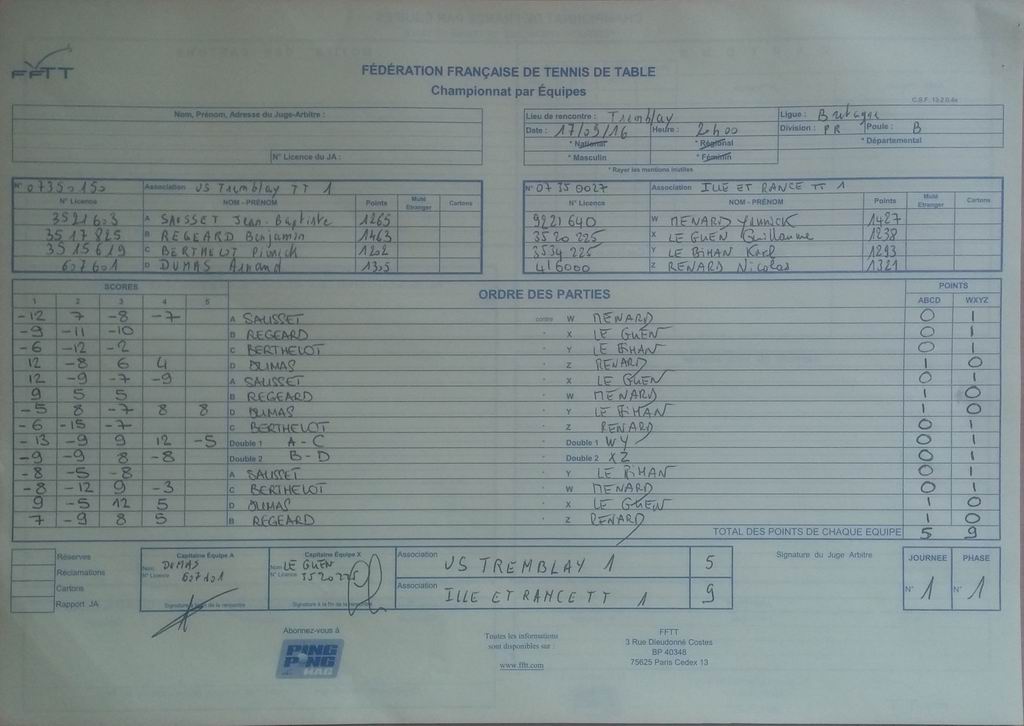 FFTT
FÉDÉRATION FRANÇAISE DE TENNIS DE TABLE
Championnat par Équipes
Nom, Prénom, Adresse du Juge-Arbitre :
N° Licence du JA :
Lieu de rencontre : Tremblay Ligue : Bretagne
Date : 17/09/16 Heure : 20h00 Division : PR Poule : B
* National * Régional * Départemental
* Masculin * Féminin
* Rayer les mentions inutiles
N° 07350150 Association US Tremblay TT 1
N° Licence NOM - PRÉNOM Points Muté Etranger Cartons
3521603 A SAUSSET Jean-Baptiste 1265
3517825 B REGEARD Benjamin 1463
3515619 C BERTHELOT Pierrick 1202
607601 D DUMAS Arnaud 1305
N° 07350027 Association ILLE ET RANCE TT 1
N° Licence NOM - PRÉNOM Points Muté Etranger Cartons
9221640 W MENARD Yannick 1427
3520225 X LE GUEN Guillaume 1238
3534225 Y LE BIHAN Karl 1293
416000 Z RENARD Nicolas 1321
SCORES ORDRE DES PARTIES POINTS
1 2 3 4 5 ABCD WXYZ
-12 7 -8 -7 A SAUSSET contre W MENARD 0 1
-9 -11 -10 B REGEARD " X LE GUEN 0 1
-6 -12 -2 C BERTHELOT " Y LE BIHAN 0 1
12 -8 6 4 D DUMAS " Z RENARD 1 0
12 -9 -7 -9 A SAUSSET " X LE GUEN 0 1
9 5 5 B REGEARD " W MENARD 1 0
-5 8 -7 8 8 D DUMAS " Y LE BIHAN 1 0
-6 -15 -7 C BERTHELOT " Z RENARD 0 1
-13 -9 9 12 -5 Double 1 A - C " Double 1 WY 0 1
-9 -9 8 -8 Double 2 B - D " Double 2 XZ 0 1
-8 -5 -8 A SAUSSET " Y LE BIHAN 0 1
-8 -12 9 -3 C BERTHELOT " W MENARD 0 1
9 -5 12 5 D DUMAS " X LE GUEN 1 0
7 -9 8 5 B REGEARD " Z RENARD 1 0
TOTAL DES POINTS DE CHAQUE EQUIPE 5 9
Réserves
Réclamations
Cartons
Rapport JA
Capitaine Équipe A
Nom DUMAS
N° Licence 607101
Signature à la fin de la rencontre
Capitaine Équipe X
Nom LE GUEN
N° Licence 3520225
Signature à la fin de la rencontre
Association US TREMBLAY 1 5
Association ILLE ET RANCE TT 1 9
Signature du Juge Arbitre
JOURNEE PHASE
N° 1 N° 1
Abonnez-vous à
PING PONG MAG
Toutes les informations
sont disponibles sur :
www.fftt.com
FFTT
3 Rue Dieudonné Costes
BP 40348
75625 Paris Cedex 13